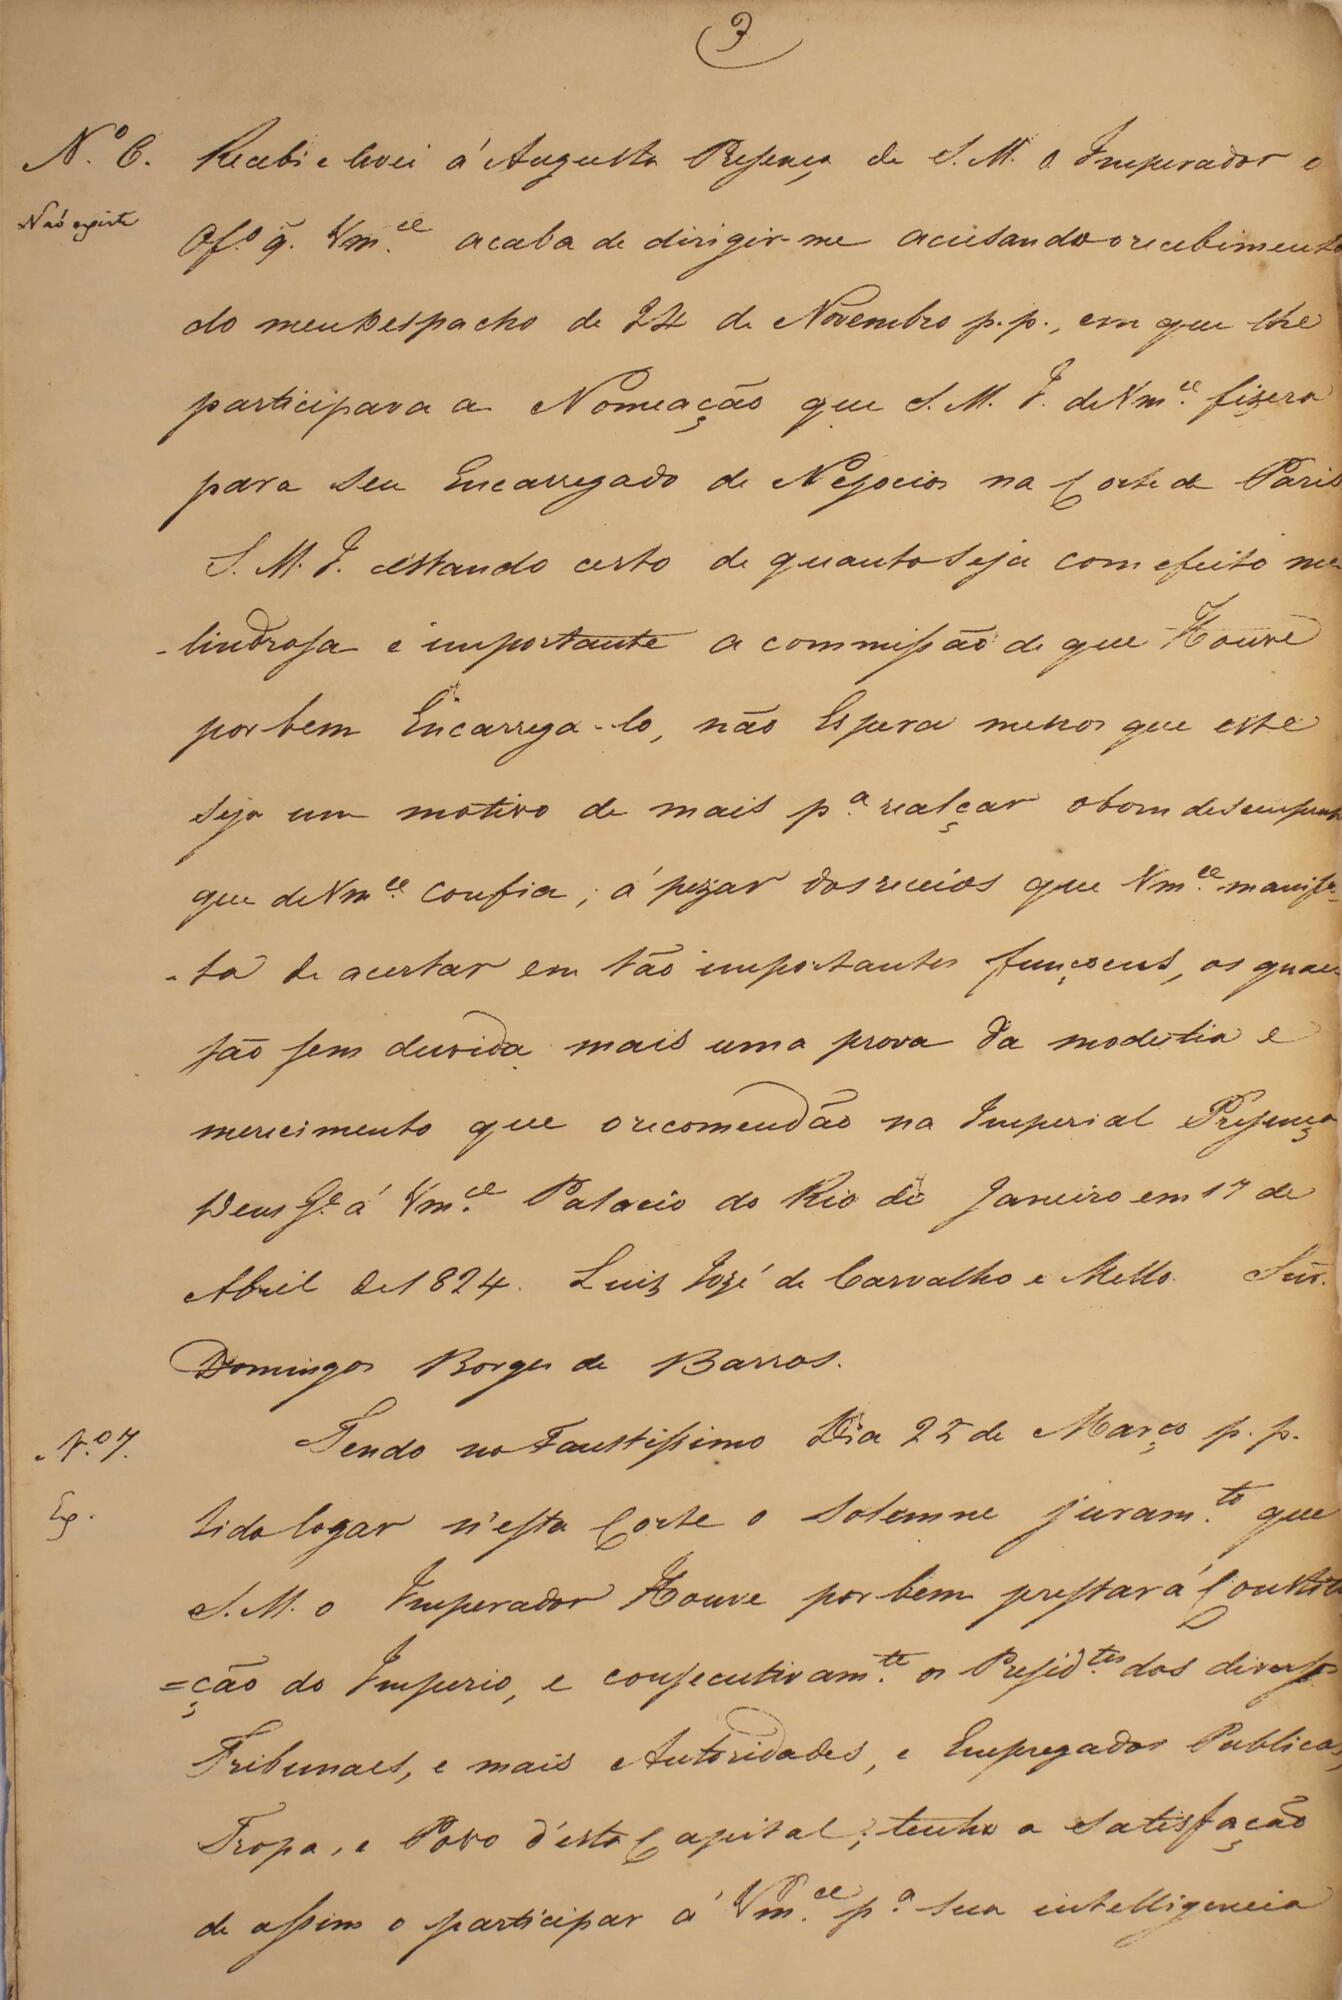 3
Nº 6. Recebi e levei á Augusta Presença de S. M. O Imperador o
Não existe
Ofº q̃. Vm.ce acaba de dirigir-me accusando o recebimento
do meu Despacho de 24 de Novembro p. p., em que lhe
participava a Nomeação que S. M. I. de Vm.ce fizera
para seu Encarregado de Negocios na Corte de Paris
S. M. I. estando certo de quanto seja com efeito me
-lindrosa e importante a commissão de que Houve
por bem Encarrega-lo, não Espera menos que este
seja um motivo de mais p.a realçar o bom desempenho
que de Vm.ce confia; á pezar dos receios que Vm.ce manifes-
-ta de acertar em tão importantes funçoens, os quaes
são sem duvida mais uma prova da modestia e
merecimento que o recomendão na Imperial Presença
Deus G.e á Vm.ce Palacio do Rio de Janeiro em 17 de
Abril de 1824. Luiz José de Carvalho e Mello. Snr.
Domingos Borges de Barros.
N.º 7. Tendo no Faustissimo Dia 25 de Março p. p.
Exp.
tido logar n'esta Corte o solemne juram.to que
S. M. o Imperador Houve por bem prestar á Constitui
=ção do Imperio, e consecutivam.te os Presid.tes dos diversos
Tribunaes, e mais Autoridades, e Empregados Publicos,
Tropa, e Povo d'esta Capital; tenho a satisfação
de assim o participar á Vm.ce p.a sua intelligencia